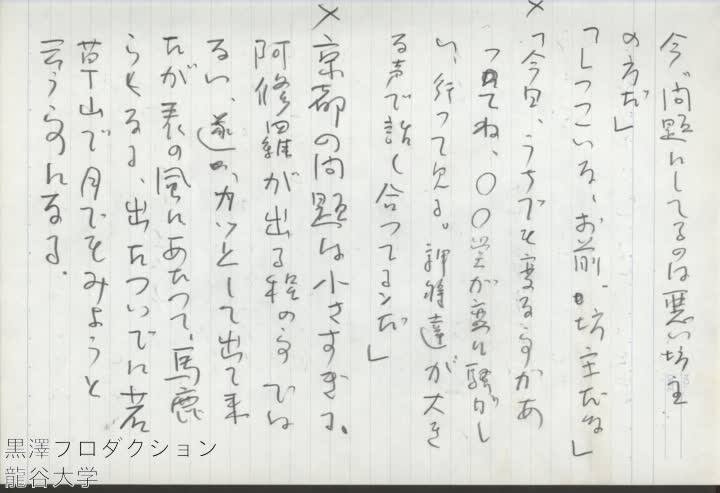 今、問題にしてるのは悪い坊主
の方だ」
「しつこいな、お前、坊主だな」
×「今日、うちでも変な事があ
ってね、〇〇堂が変に騒がし
い、行って見る。神将達が大き
な声で話し合ってるンだ」
×京都の問題は小さすぎる、
阿修羅が出る程の事では
ない、遂、カッとして出て来
たが表の風にあたって、馬鹿
らしくなる、出たついでに若
草山で月でもみようと
云う事になる。
黒澤プロダクション
龍谷大学